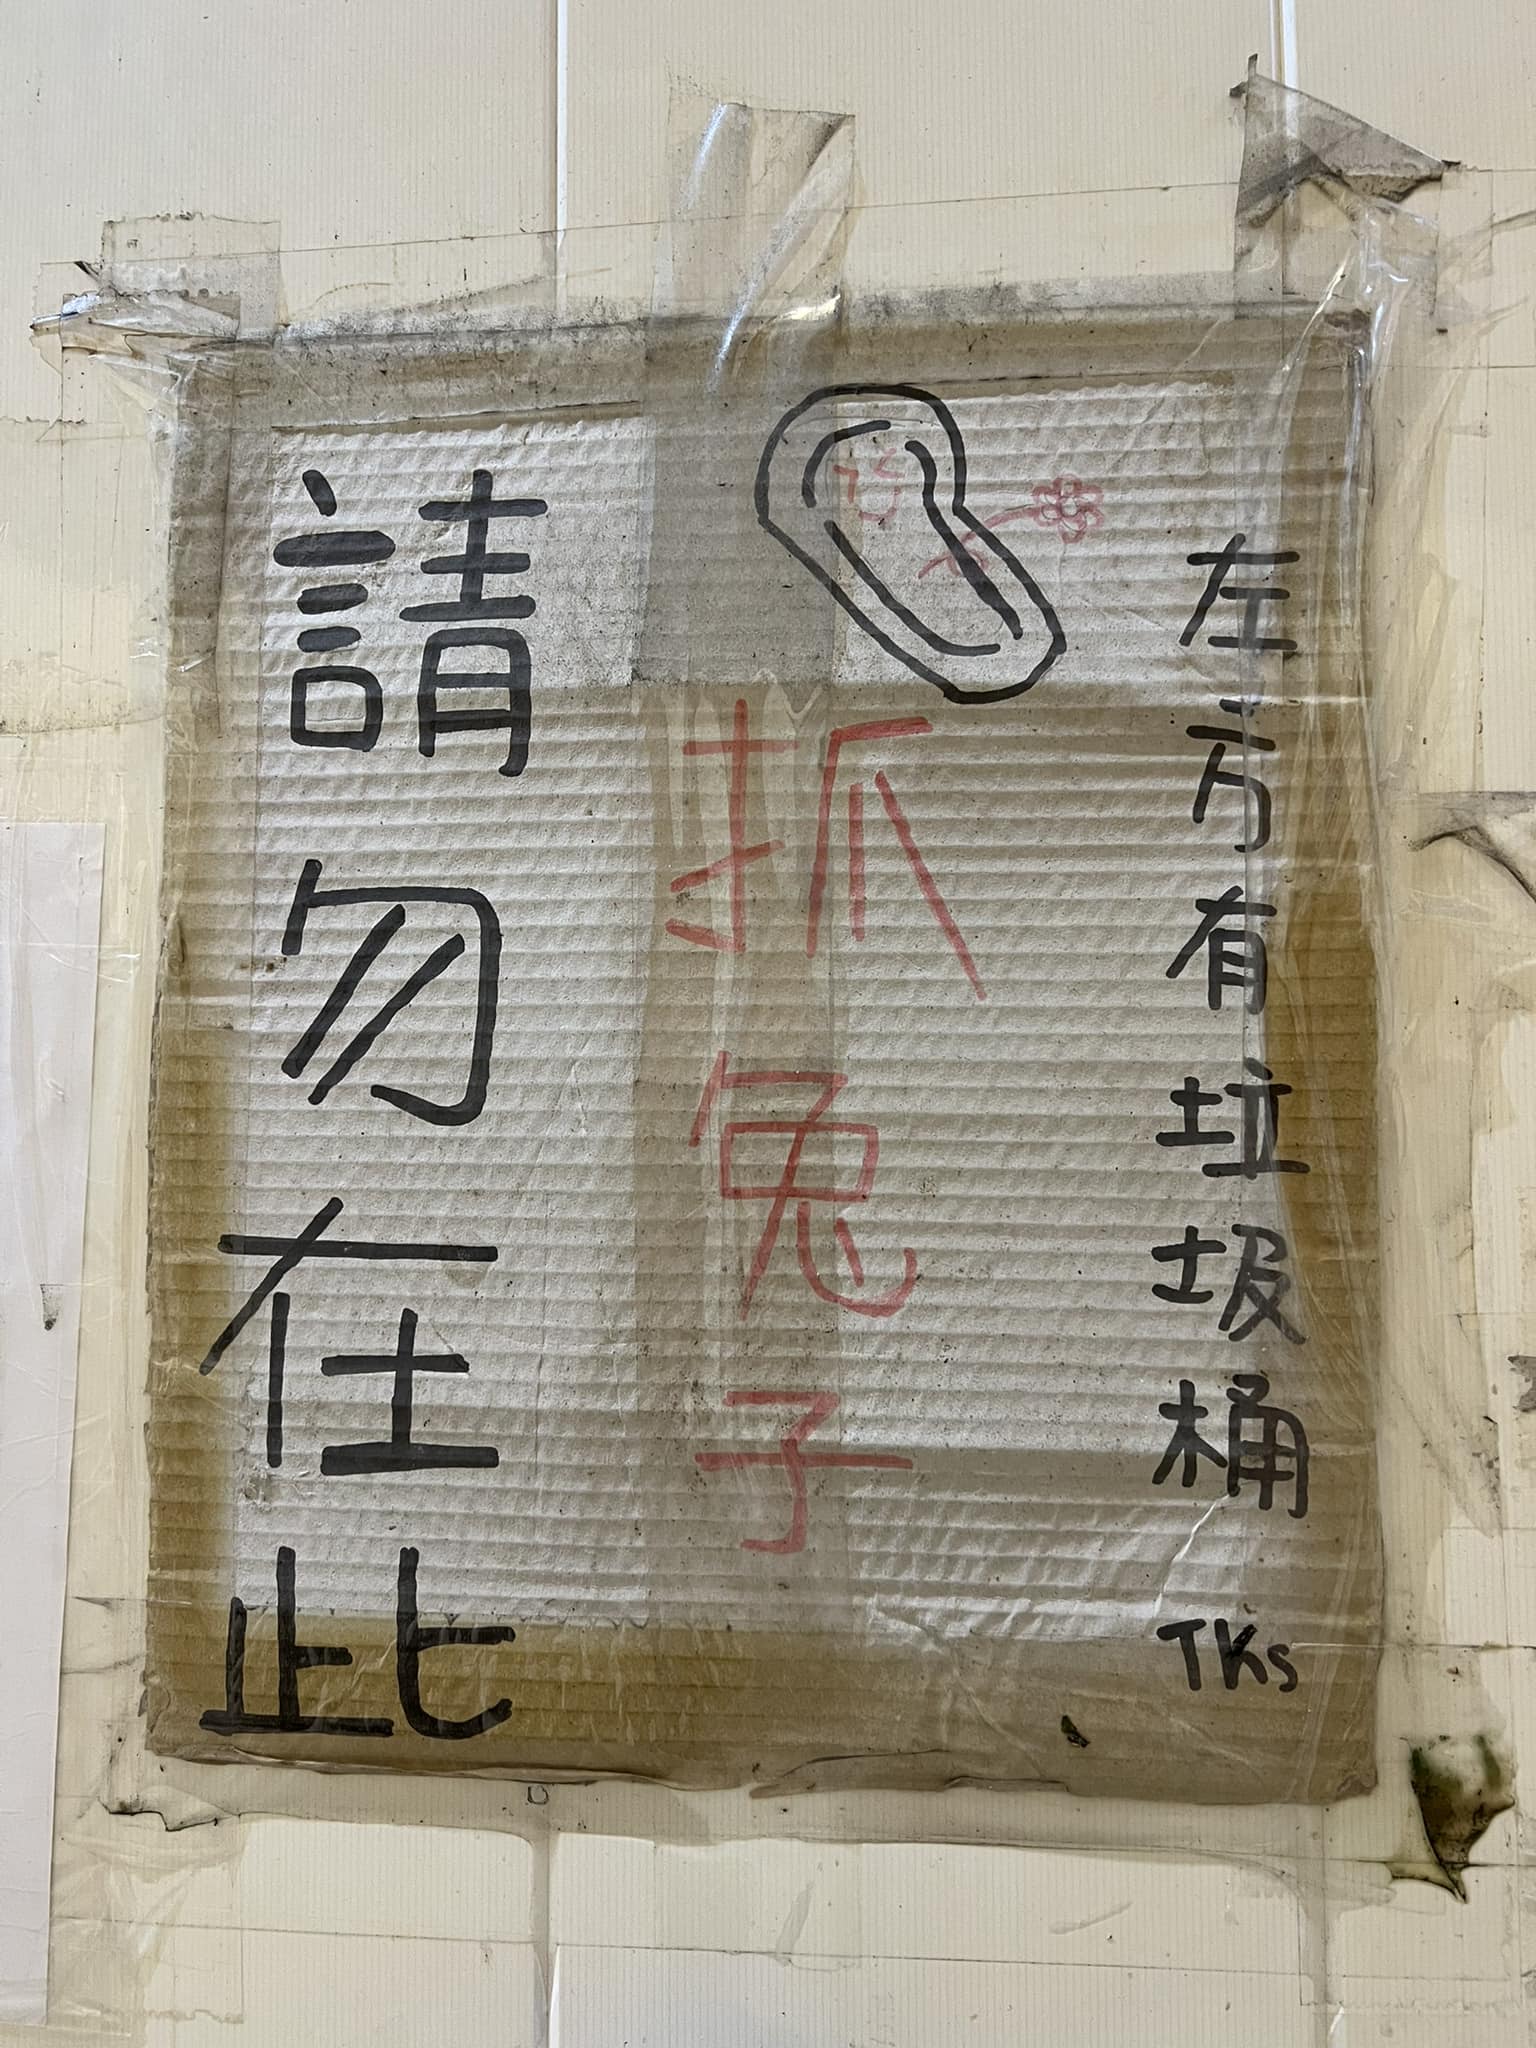 請勿在此
抓兔子
左方有垃圾桶
TKs